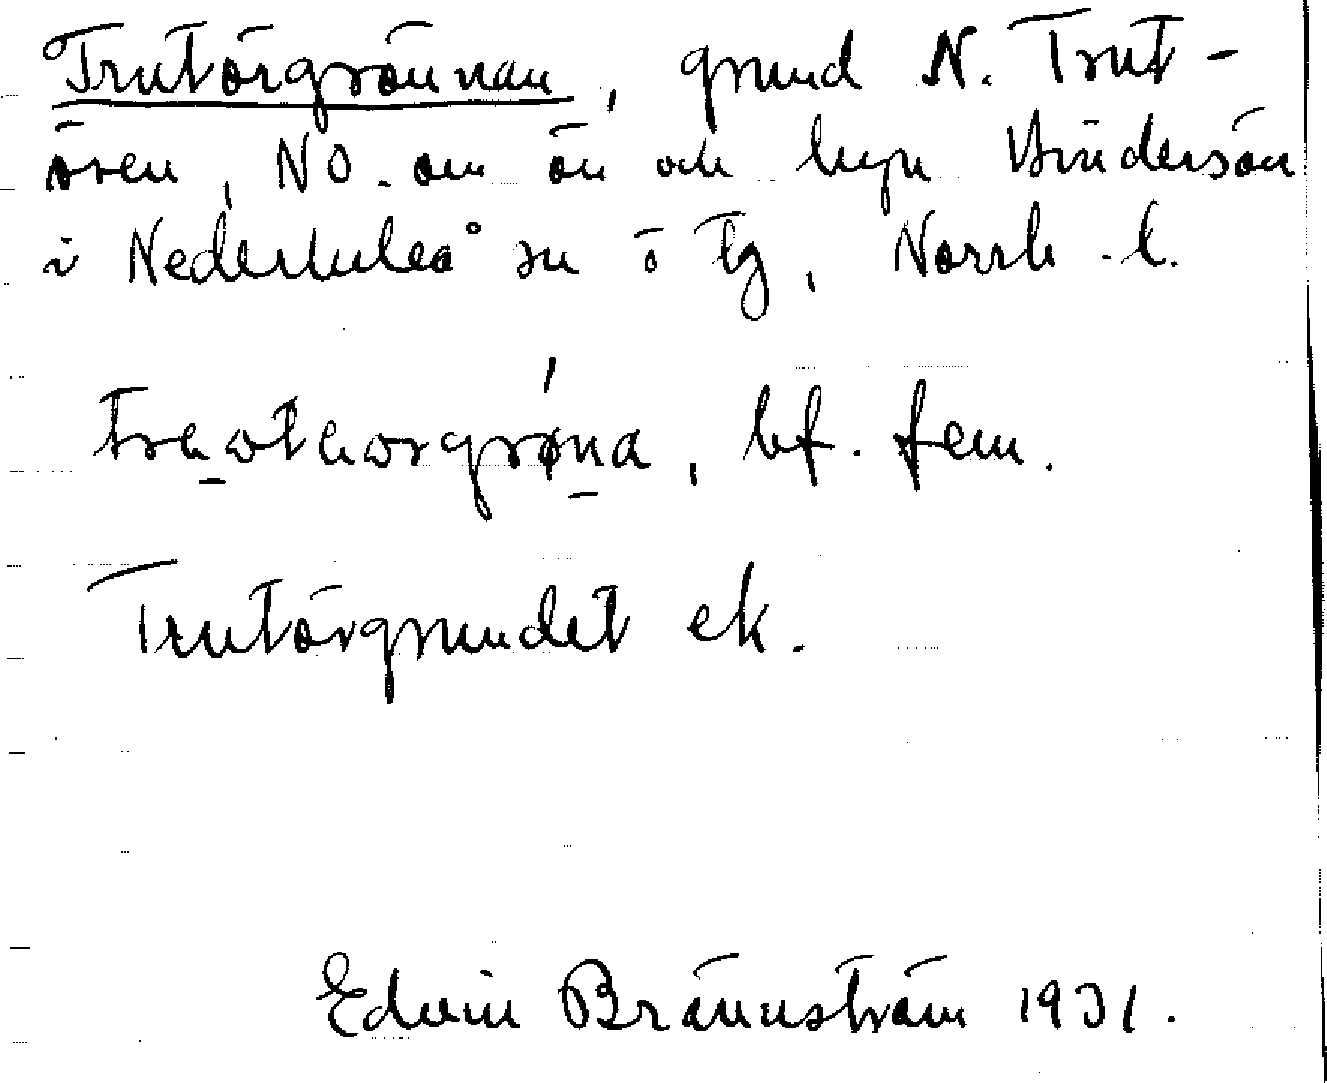 Trutörgrönnan, grund N. Trut-
ören, NO. om ön och byn Hindersön
i Nederluleå sn o tg, Norrb. l.
bf. fem.
Trutörgrundet ek.
Edvin Brännström 1931.